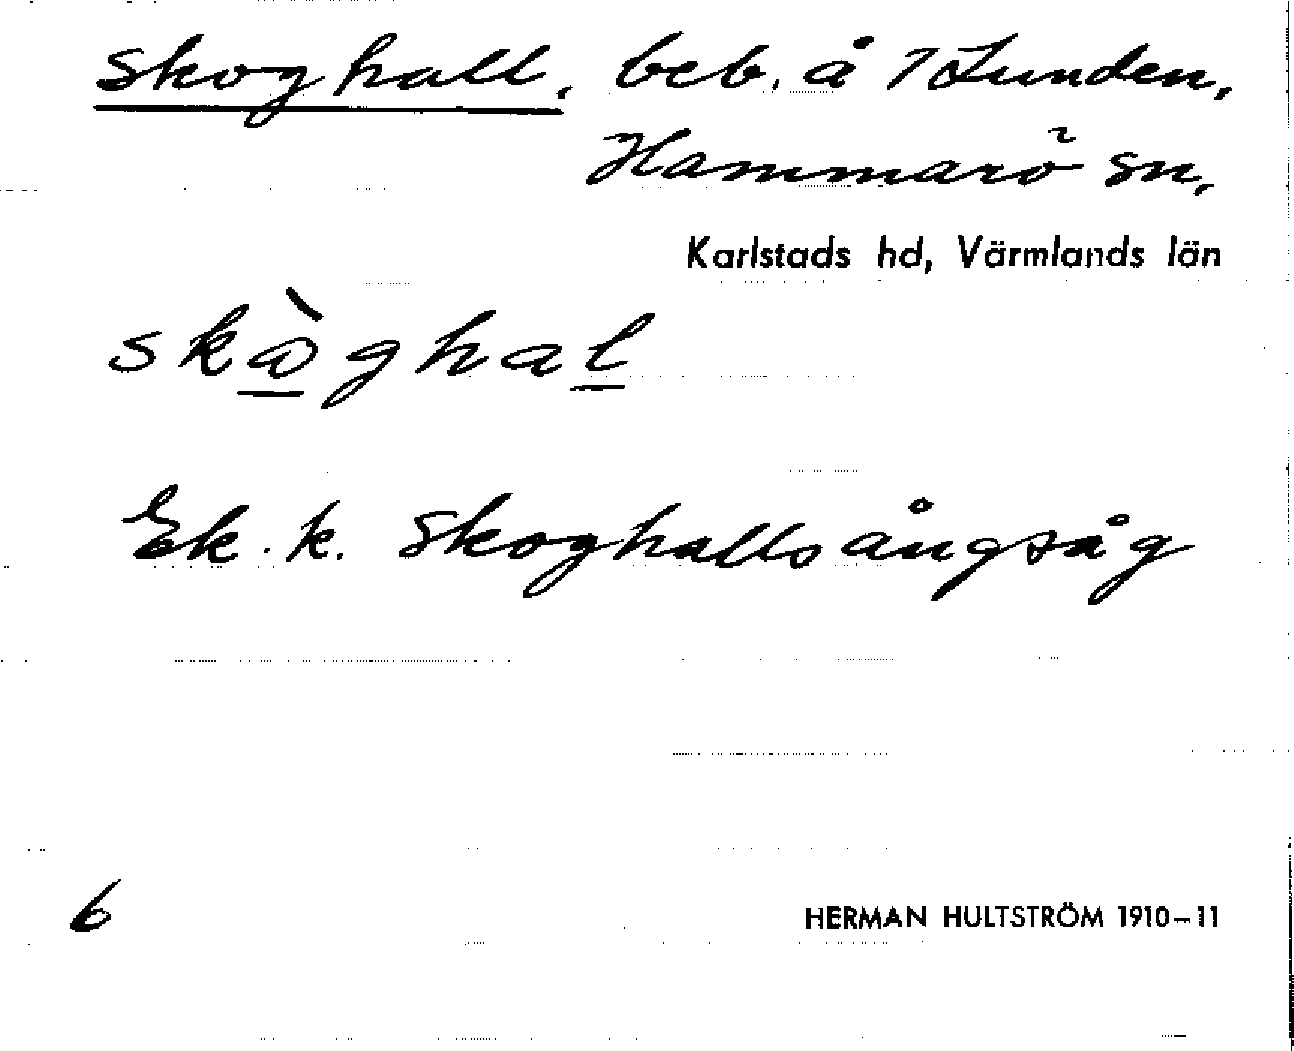 Skoghall, beb. å 7 Lunden,
Hammarö sn,
Karlstads hd, Värmlands län
skàghal
Ek. k. Skoghallsångsåg
6
HERMAN HULTSTRÖM 1910–11